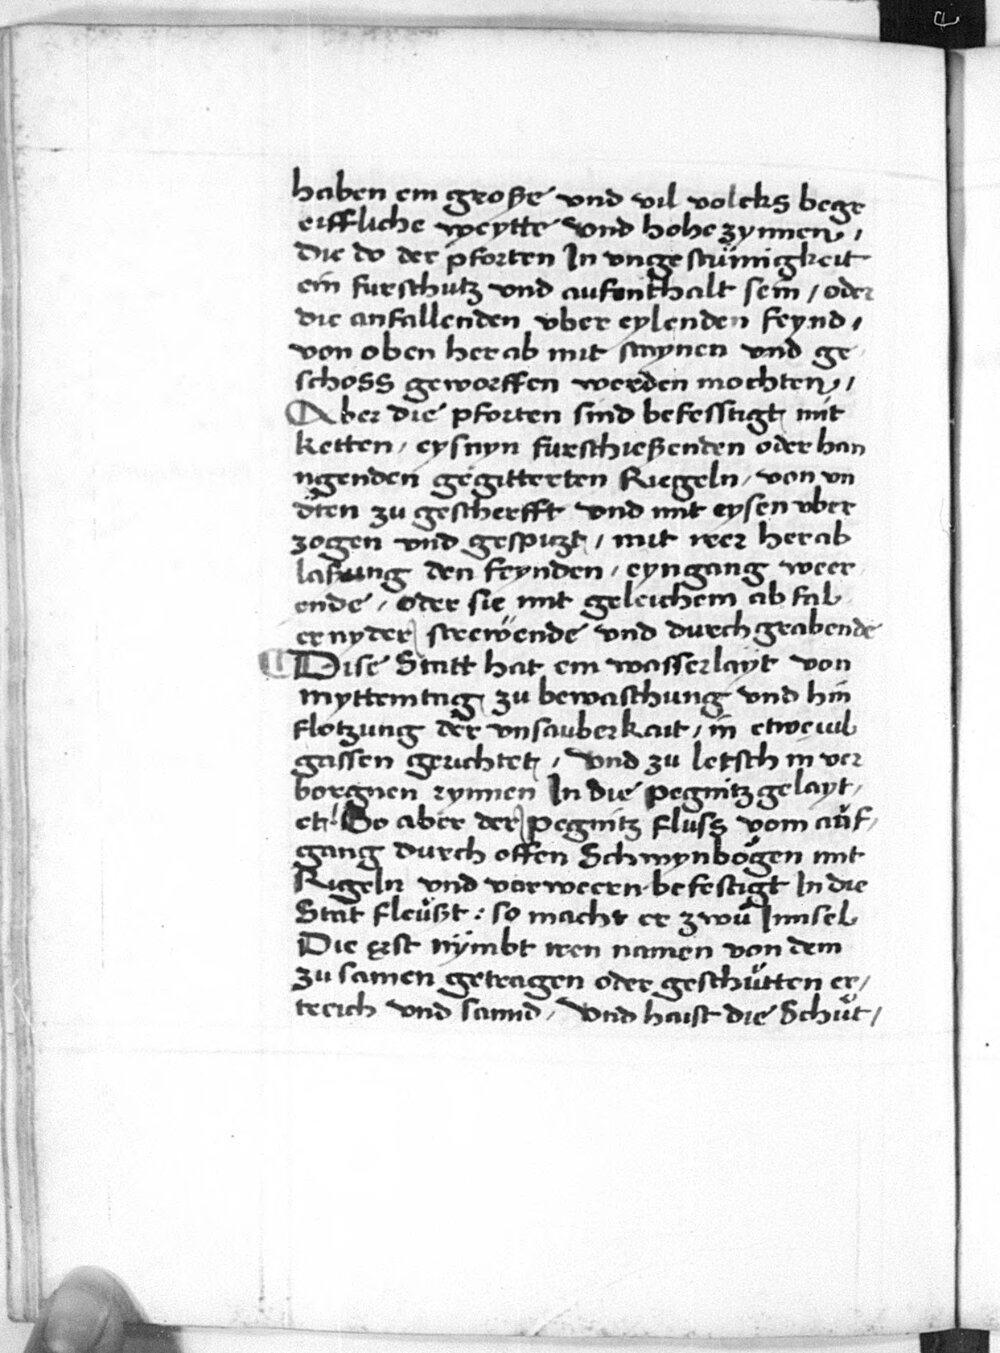 haben ein große vnd vil volcks bege
eiffliche weytte vnd hohe zynnen,
die do der pforten In vngestümigkeit
ein furschutz vnd aufenthalt sein / oder
die anfallenden vber eylenden feynd,
von oben herab mit staynen vnd ge
schoss geworffen werden mochten,
Aber die pforten sind befesstigt mit
ketten, eysnyn furschießenden oder han
ngenden gegitterten Riegeln, von vn
dten zu gescherfft vnd mit eysen vber
zogen vnd gespitzt, mit irer herab
laßung den feynden, eyngang weer
ende, oder sie mit geleichem ab fal
er nyder strewende vnd durchgrabende
Dise Statt hat ein wasserlayt von
myttemtag zu bewaschung vnd hin
flotzung der vnsauberkait, in etwevil
gassen gerichtet, vnd zu letsch in ver
borgnen rynnen In die pegnitz gelayt,
etc So aber der pegnitz fluss vom auf,
gang durch offen Schwynbögen mit
Rigeln vnd vorweern befestigt In die
Stat fleüßt: so macht er zwu Innsel
Die erst nÿmbt iren namen von dem
zu samen getragen oder geschütten er,
treich vnd sannd, vnd haist die Schüt,